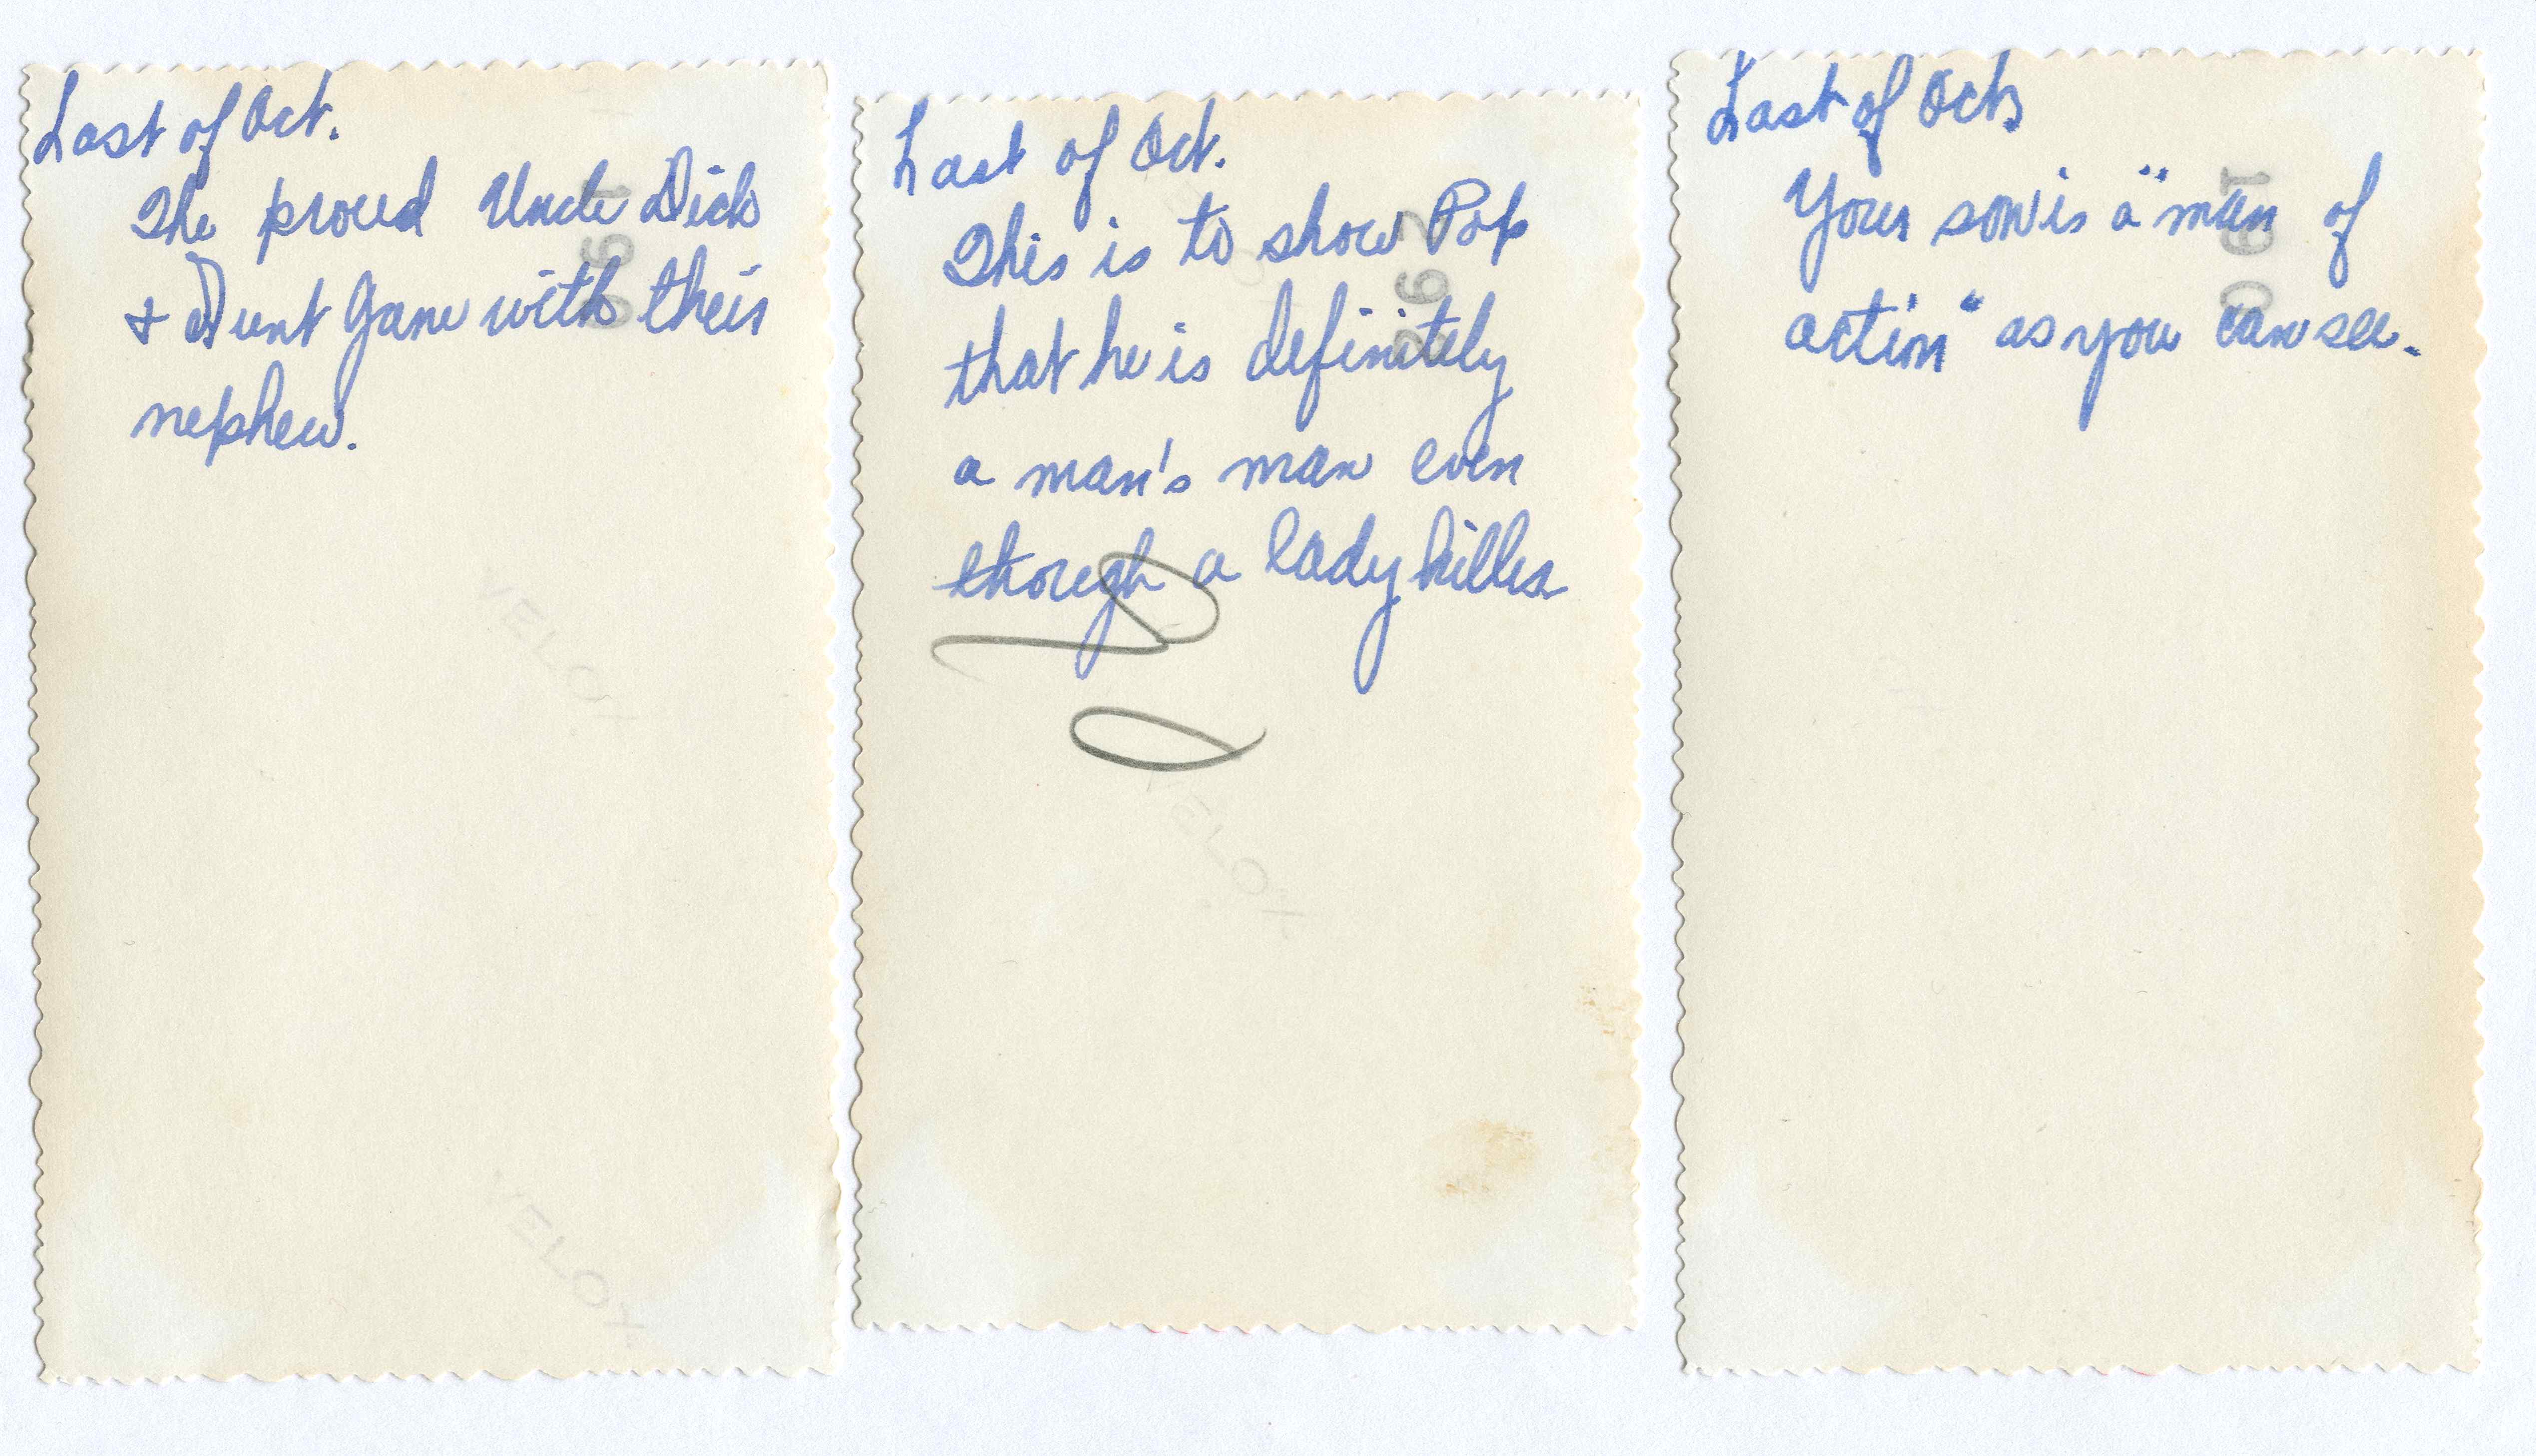 Last of Oct.
The proud Uncle Dick
& Aunt Jane with their
nephew.
VELOX
VELOX
Last of Oct.
This is to show Pop
that he is definitely
a man's man even
though a lady killer
VELOX
Last of Oct.
Your son is a "man of
action" as you can see.